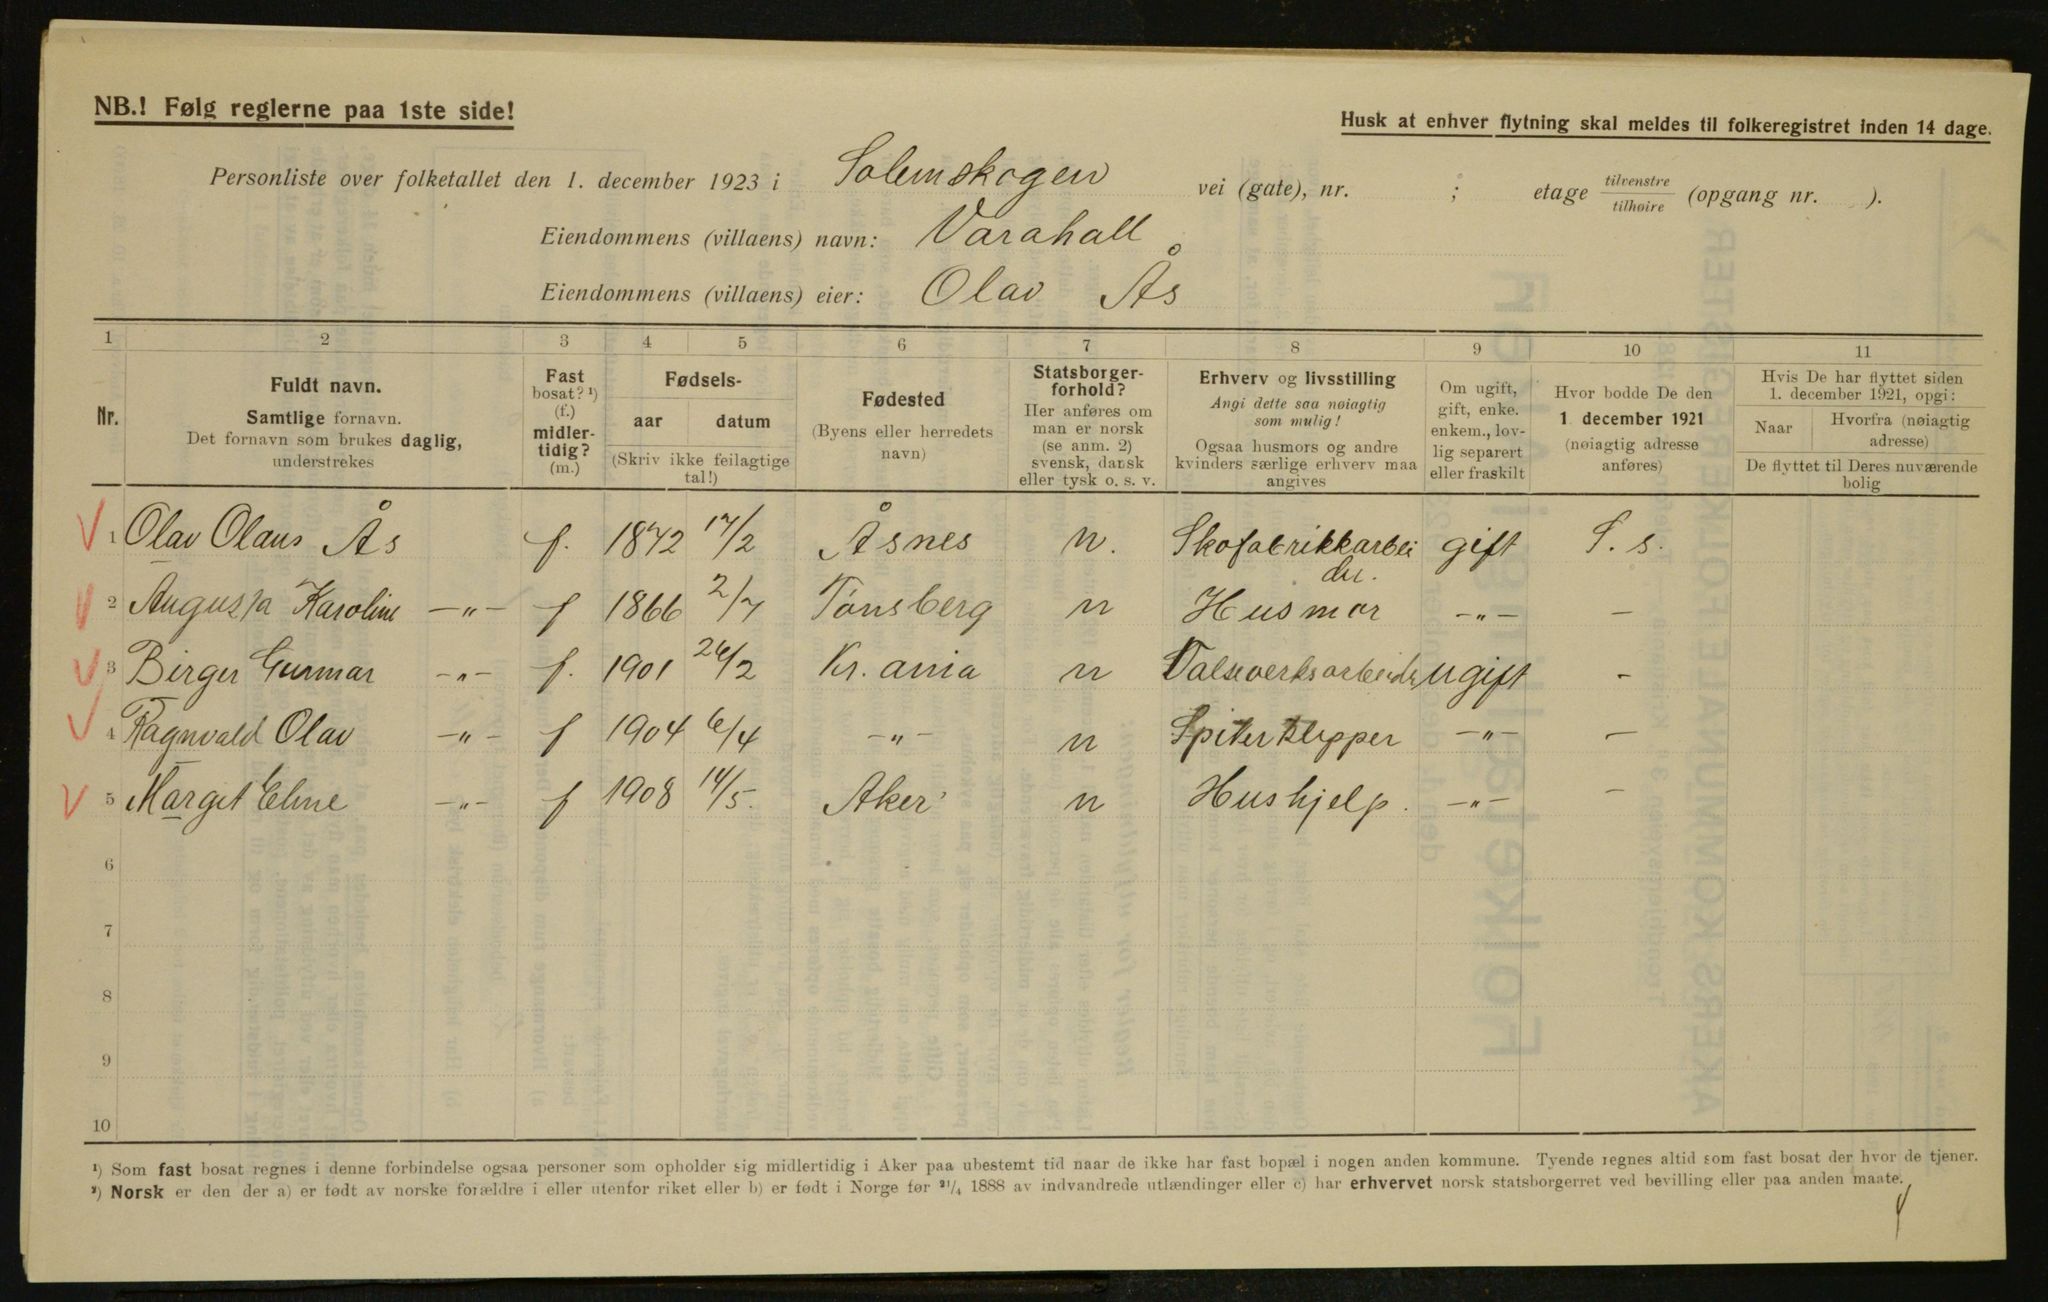 NB.! Følg reglerne paa 1ste side!
Husk at enhver flytning skal meldes til folkeregistret inden 14 dage.
Personliste over folketallet den 1. december 1923 i Solemskogen vei (gate), nr. ; etage tilvenstre / tilhøire (opgang nr. ).
Eiendommens (villaens) navn: Varahall
Eiendommens (villaens) eier: Olav Ås
1 2 3 4 5 6 7 8 9 10 11
Nr.
Fuldt navn.
Samtlige fornavn.
Det fornavn som brukes daglig,
understrekes
Fast
bosat? ¹)
(f.)
midler-
tidig?
(m.)
Fødsels-
aar datum
(Skriv ikke feilagtige
tal!)
Fødested
(Byens eller herredets
navn)
Statsborger-
forhold?
Her anføres om
man er norsk
(se anm. 2)
svensk, dansk
eller tysk o. s. v.
Erhverv og livsstilling
Angi dette saa nøiagtig
som mulig!
Ogsaa husmors og andre
kvinders særlige erhverv maa
angives
Om ugift,
gift, enke.
enkem., lov-
lig separert
eller fraskilt
Hvor bodde De den
1 december 1921
(nøiagtig adresse
anføres)
Hvis De har flyttet siden
1. december 1921, opgi:
Naar
Hvorfra (nøiagtig
adresse)
De flyttet til Deres nuværende
bolig
1 Olav Olaus Ås f. 1872 17/2 Åsnes n. Skofabrikkarbei gift S. s.
der.
2 Augusta Karoline —„— f 1866 2/7 Tønsberg n Husmor —„— —
3 Birger Gunnar —„— f. 1901 26/2 Kr.ania n Valseverksarbeider ugift -
4 Ragnvald Olav —„— f 1904 6/4 —„— n Spikerklipper —„— —
5 Margit Eline —„— f 1908 14/5. Aker n Hushjelp. —„— —
6
7
8
9
10
¹) Som fast bosat regnes i denne forbindelse ogsaa personer som opholder sig midlertidig i Aker paa ubestemt tid naar de ikke har fast bopæl i nogen anden kommune. Tyende regnes altid som fast bosat der hvor de tjener.
²) Norsk er den der a) er født av norske forældre i eller utenfor riket eller b) er født i Norge før ²¹/₄ 1888 av indvandrede utlændinger eller c) har erhvervet norsk statsborgerret ved bevilling eller paa anden maate.